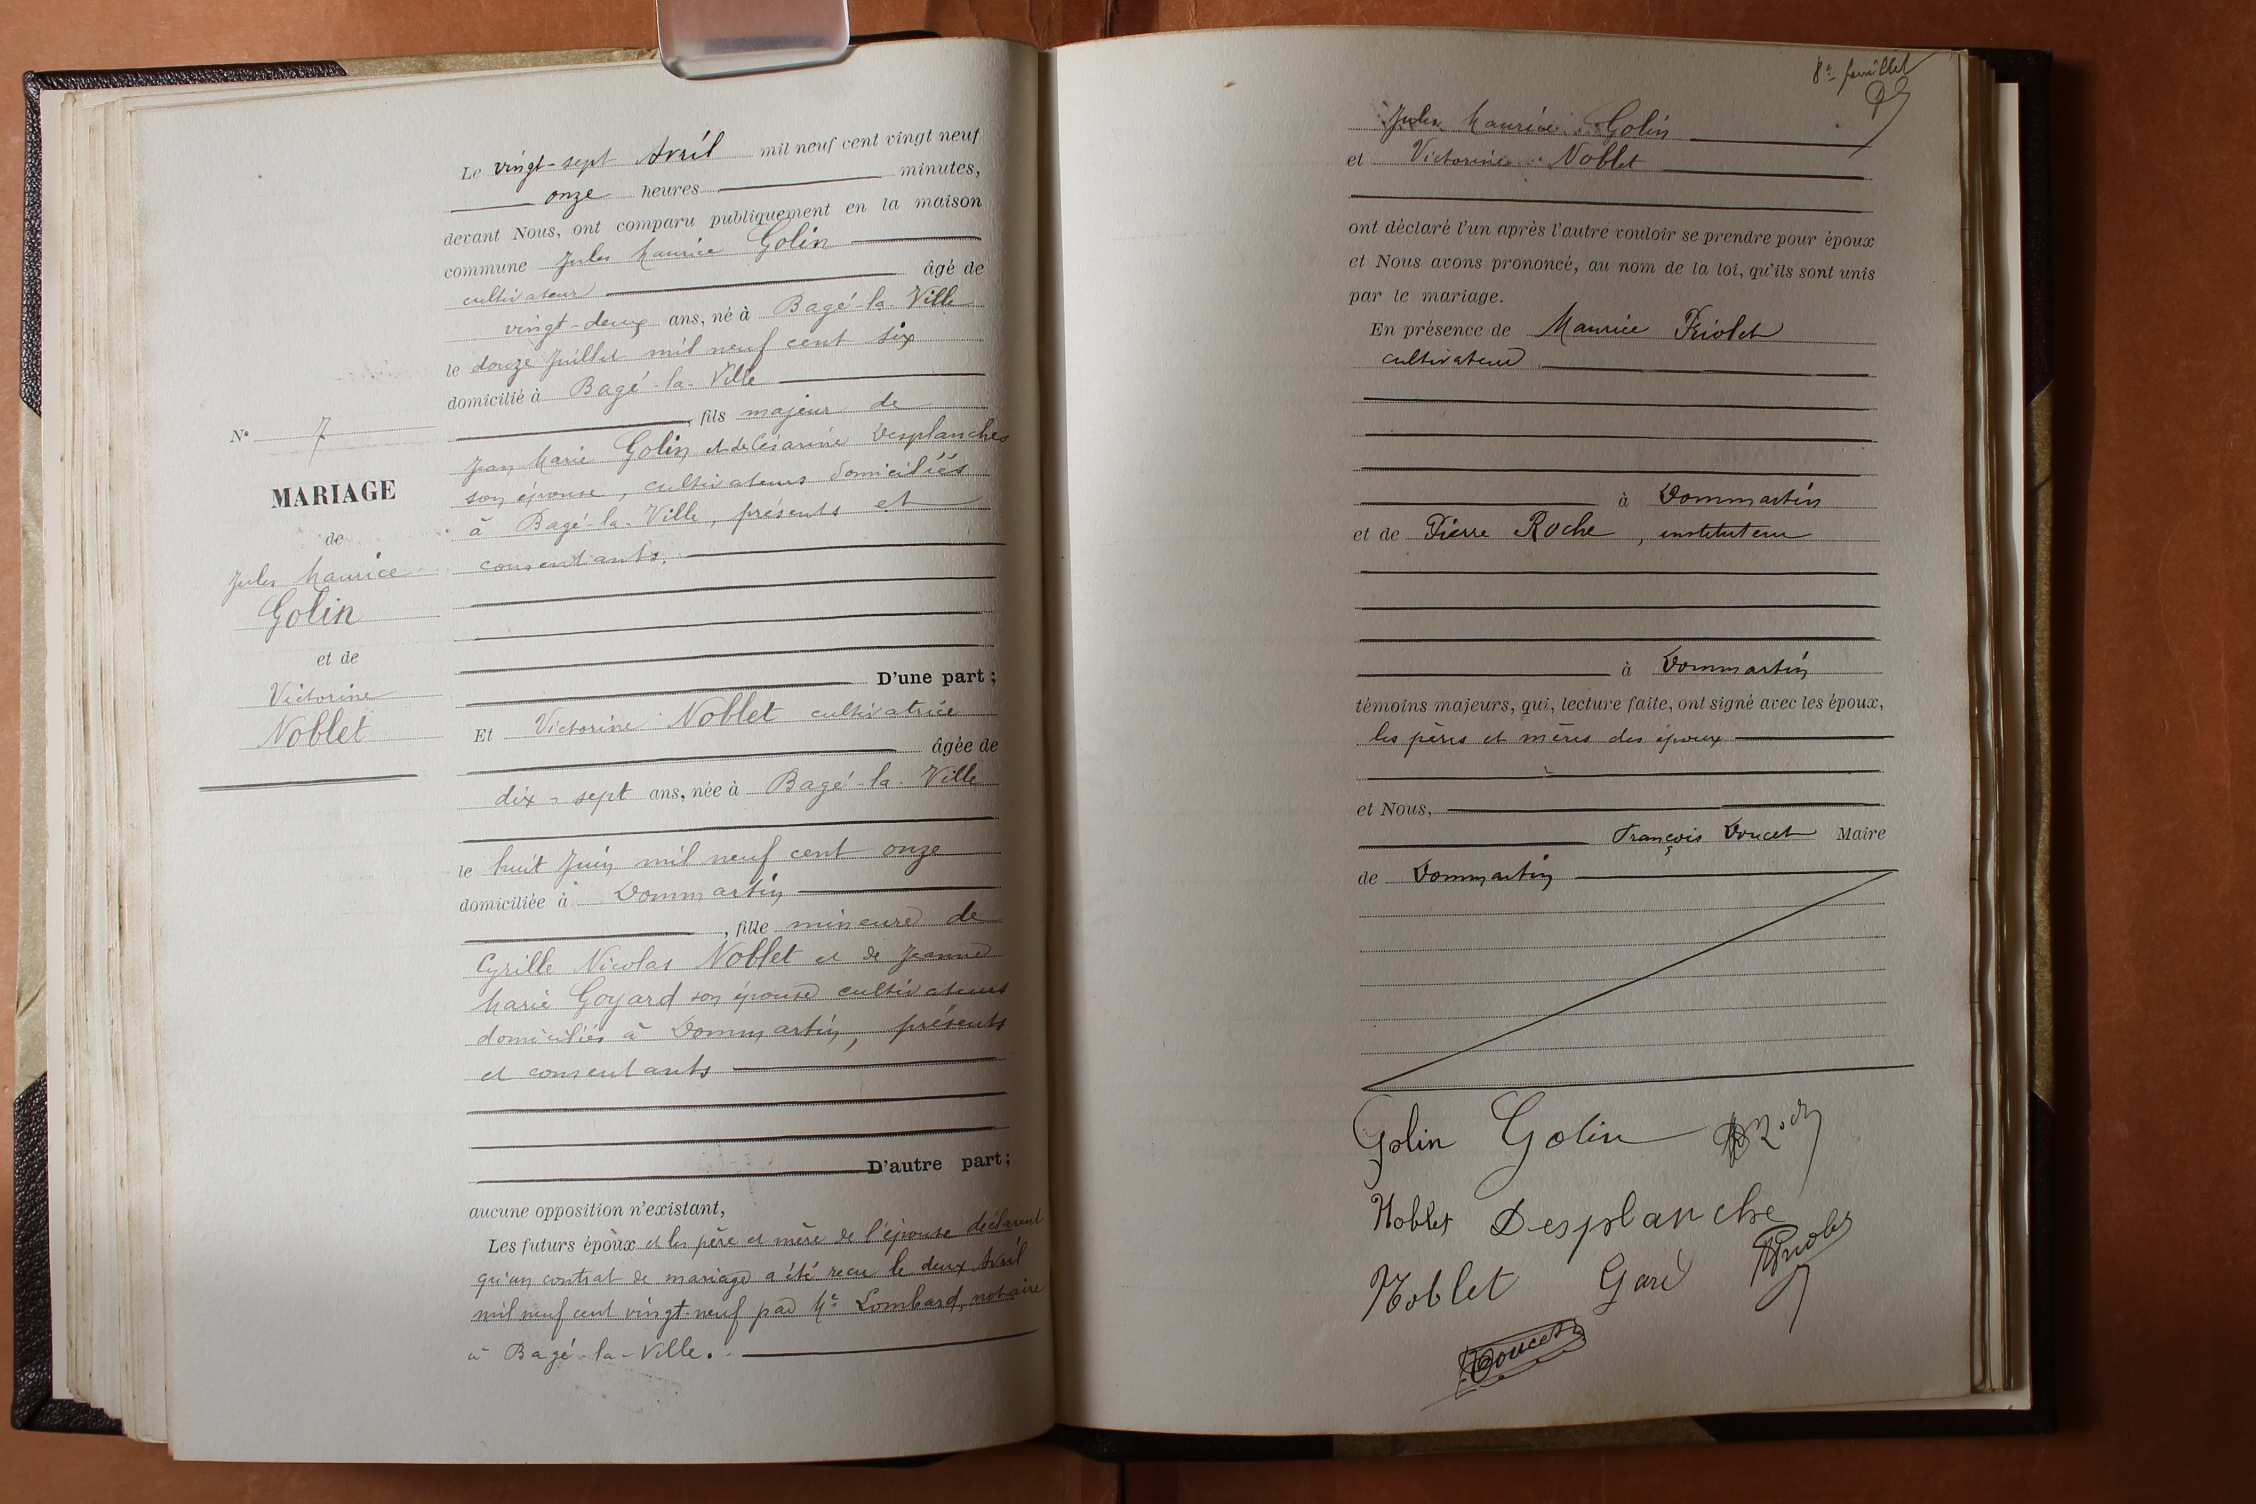 N° 7
MARIAGE
de
Jules Maurice
Golin
et de
Victorine
Noblet
Le vingt-sept Avril mil neuf cent vingt neuf
onze heures minutes,
devant Nous, ont comparu publiquement en la maison
commune Jules Maurice Golin
cultivateur âgé de
vingt-deux ans, né à Bagé-la-Ville
le douze Juillet mil neuf cent six
domicilié à Bagé-la-Ville
, fils majeur de
Jean Marie Golin et de Césarine Desplanches
son épouse, cultivateurs domiciliés
à Bagé-la-Ville, présents et
consentants.
D'une part;
Et Victorine Noblet cultivatrice
âgée de
dix-sept ans, née à Bagé-la-Ville
le huit Juin mil neuf cent onze
domiciliée à Dommartin
, fille mineure de
Cyrille Nicolas Noblet et de Jeanne
Marie Goyard son épouse cultivateurs
domiciliés à Dommartin, présents
et consentants
D'autre part;
aucune opposition n'existant,
Les futurs époux et les père et mère de l'épouse déclarent
qu'un contrat de mariage a été reçu le deux Avril
mil neuf cent vingt-neuf par Me Lombard, notaire
à Bagé-la-Ville.
8e feuillet
Jules Maurice Golin
et Victorine Noblet
ont déclaré l'un après l'autre vouloir se prendre pour époux
et Nous avons prononcé, au nom de la loi, qu'ils sont unis
par le mariage.
En présence de Maurice Friolet
cultivateur
à Dommartin
et de Pierre Roche, instituteur
à Dommartin
témoins majeurs, qui, lecture faite, ont signé avec les époux,
les pères et mères des époux
et Nous,
François Doucet Maire
de Dommartin
Golin Golin
Noblet Desplanche
Noblet
Doucet